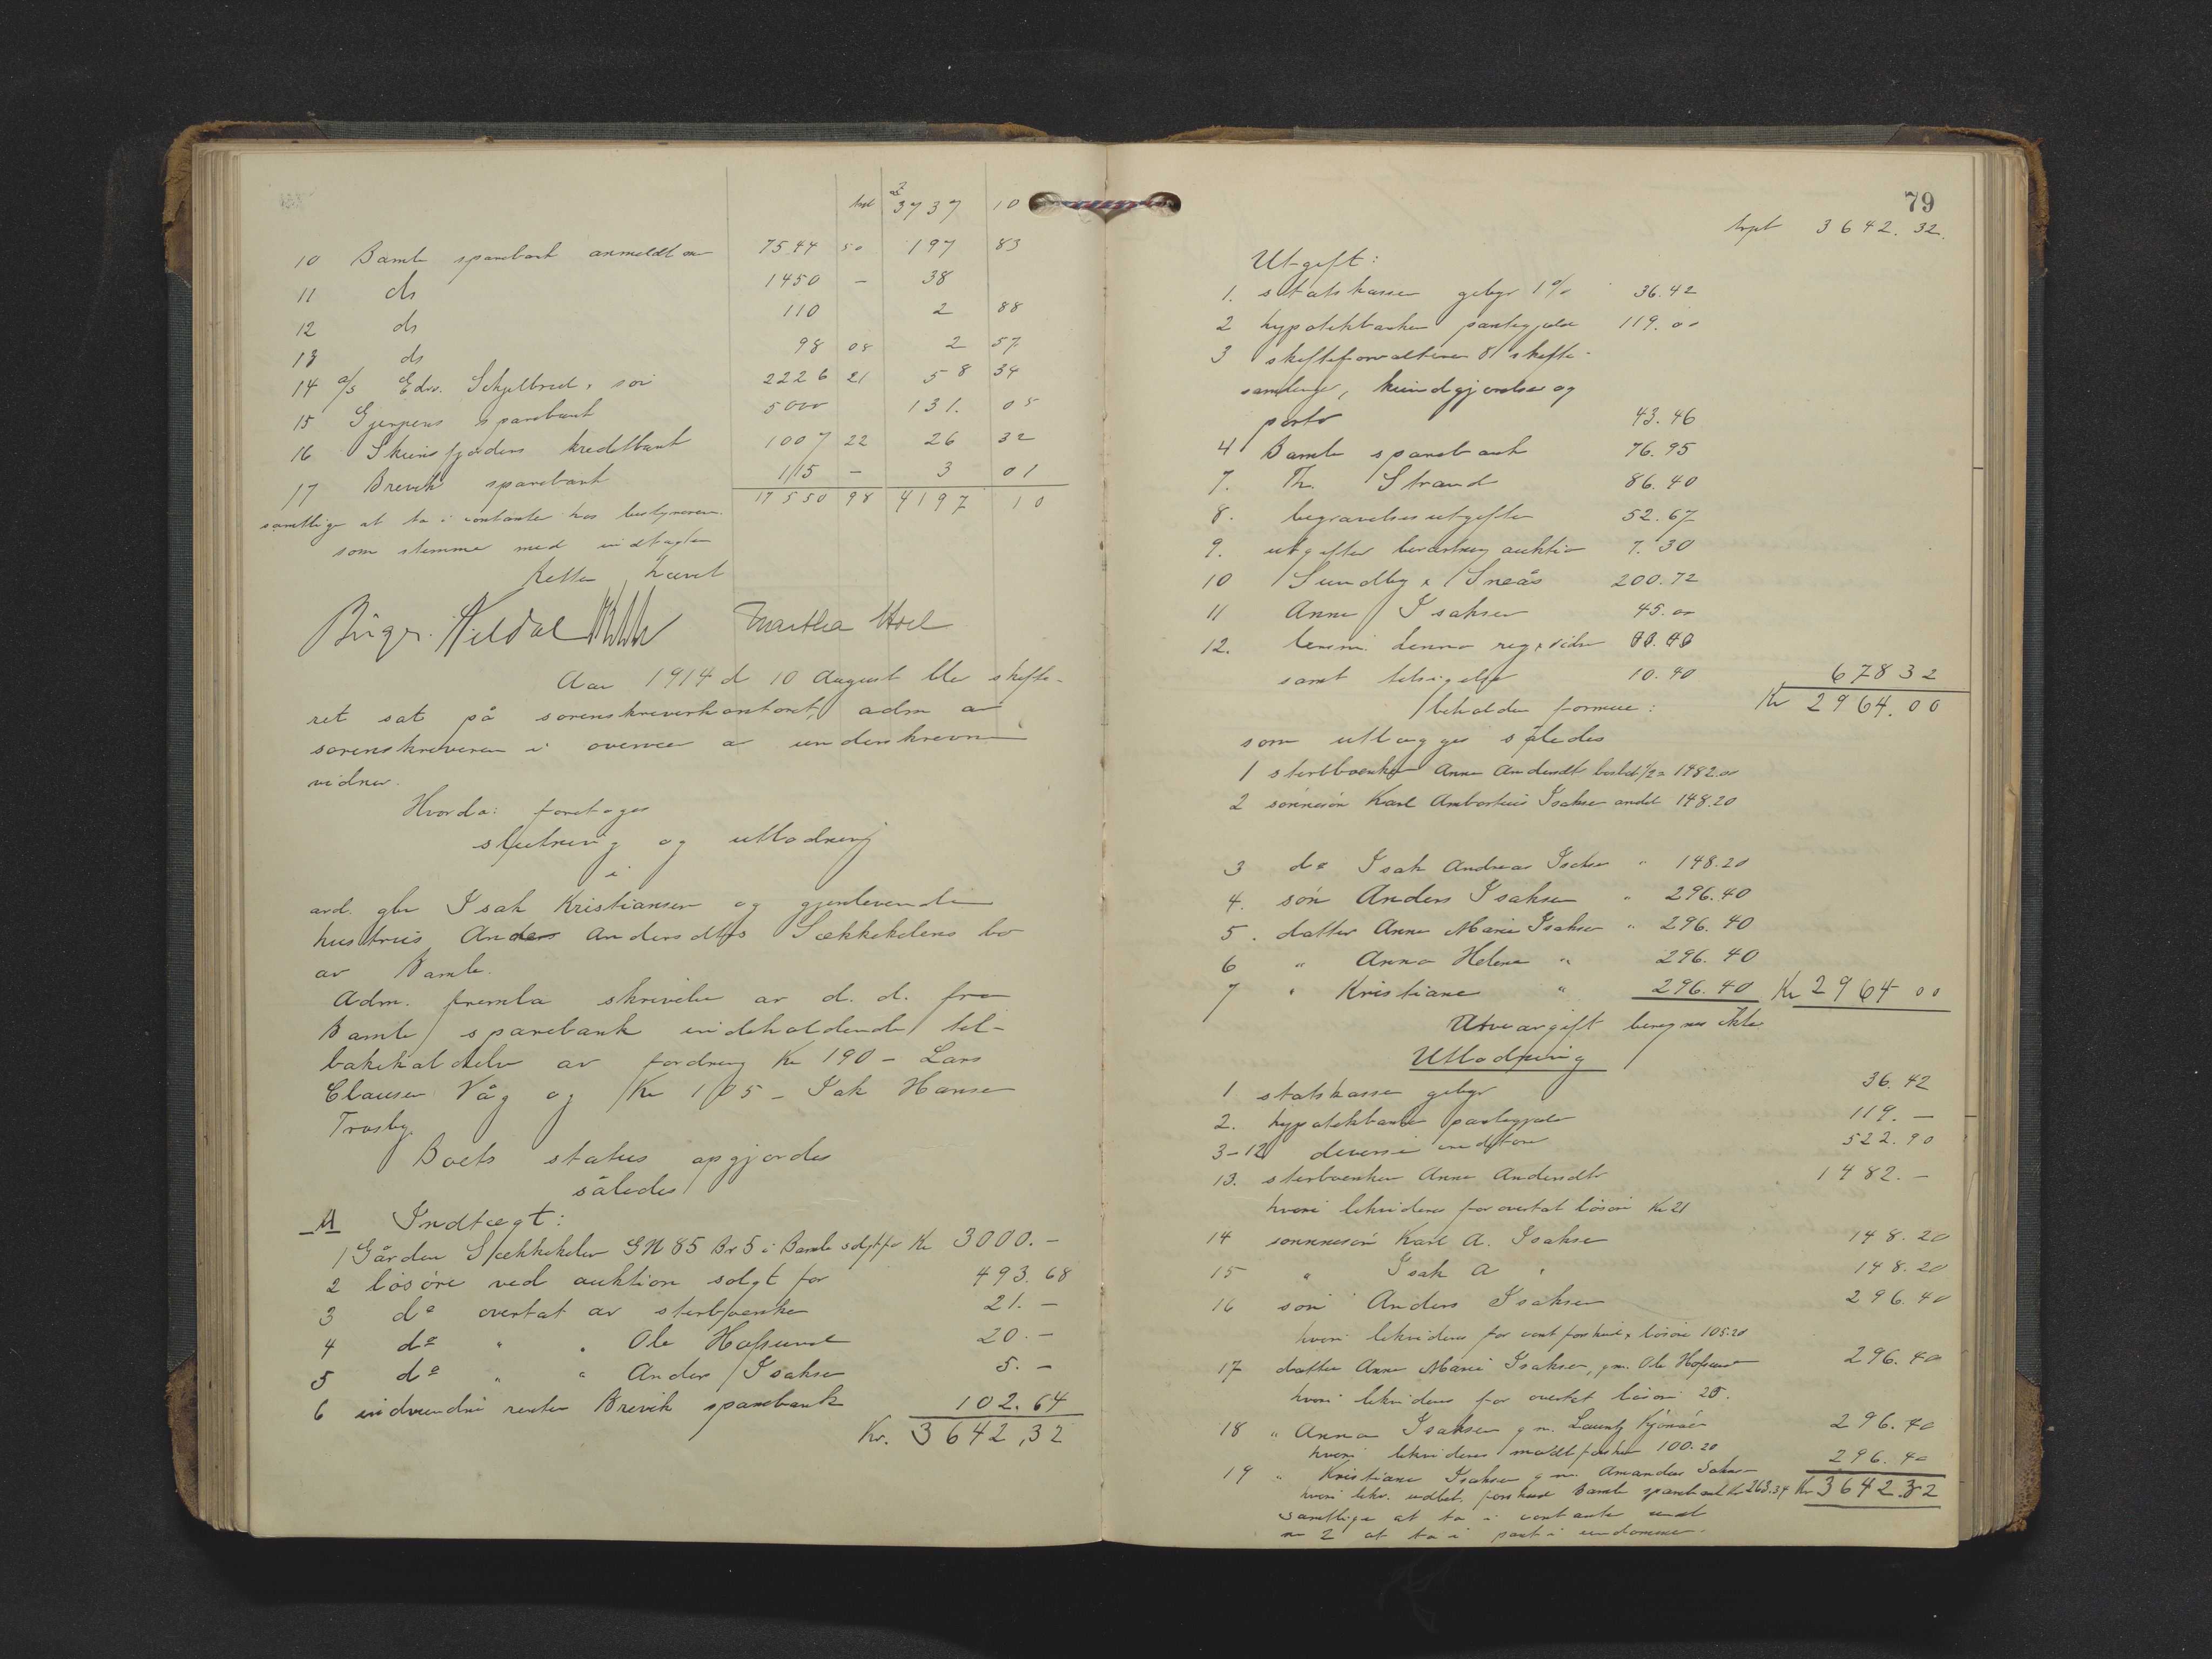 trsp 3737 10
10 Bamle sparebank anmeldt mer 7544 50 197 83
11 do 1450 - 38
12 do 110 2 88
13 do 98 08 2 57
14 a/s Edv. Schjelbred & søn 2226 21 58 34
15 Gjerpens sparebank 5000 131. 05
16 Skiensfjordens kreditbank 1007 22 26 32
17 Brevik sparebank 115 - 3 01
17550 98 4197 10
samtlige at ta i contanter hos bestyreren
som stemmer med indtægten
Retten hævet
Birger Kildal Martha Moel
Aar 1914 d 10 August blev skifte-
ret sat på sorenskriverkontoret, adm av
sorenskriveren i overvær av underskrevne
vidner.
Hvorda: foretoges
slutning og utlodning
i
avd. gbr Isak Kristiansen og gjenlevende
hustrus Anders Andersdtrs Stækkekelens bo
av Bamle.
Adm. fremla skrivelse av d. d. fra
Bamle sparebank indeholdende til-
bakekaldelse av fordring Kr 190 - Lars
Clausen Våg og Kr 105 - Isak Hansen
Trosby.
Boets status opgjordes
således
A Indtægt:
1 Gården Stækkekelen GN 85 Br 5 i Bamle solgt for Kr 3000. -
2 løsøre ved auktion solgt for 493. 68
3 do overtat av sterboenken 21. -
4 do " " Ole Hafsund 20. -
5 do " " Anders Isaksen 5. -
6 indvundne renter Brevik sparebank 102. 64
Kr. 3642,32
79
trspt 3642. 32.
Utgift:
1. statskassen gebyr 1% 36.42
2 hypotekbanken pantegjæld 119.00
3 skifteforvalteren 8 skifte-
samlinger, kundgjørelse og
porto 43.46
4 Bamle sparebank 76.95
7. Th. Strand 86.40
8. begravelsesutgifter 52.67
9. utgifter beværtning auktion 7.30
10 Sundby & Sneås 200.72
11 Anne Isaksen 45.00
12. lensm. denne reg. & vidner
samt tilsigelse 10.40 678 32
beholden formue: Kr 2964.00
som utlægges således
1 sterbboenken Anne Andersdtr boslod 1/2 = 1482.00
2 sønnesøn Karl Ambortius Isaksen andel 148.20
3 do Isak Andreas Isaksen " 148.20
4. søn Anders Isaksen " 296.40
5. datter Anne Marie Isaksen " 296.40
6 " Anna Helene " 296.40
7 " Kristiane " 296.40 Kr 2964 00
Arveavgift beregnes ikke
Utlodning
1 statskassen gebyr 36.42
2. hypotekbanken pantegjæld 119. -
3-12 diverse creditorer 522.90
13. sterboenken Anne Andersdtr 1482. -
hvori likvideres for overtat løsøre Kr 21
14 sønnesøn Karl A. Isaksen 148.20
15 " Isak A " 148.20
16 søn Anders Isaksen 296.40
hvori likvideres for cont forskud & løsøre 105.20
17 datter Anne Marie Isaksen, g.m. Ole Hafsund 296.40
hvori likvideres for overtat løsøre 25.
18 " Anna Isaksen g m. Lauritz Kjønnås 296.40
hvori likvideres motat forskud 100.20
19 " Kristiane Isaksen g m. Amandus 296.40
hvori likv. utbet. forskud Bamle sparebank Kr 263.34 Kr 3642.32
samtlige at ta i contanter undt
nr 2 at ta i pant i eiendommen.